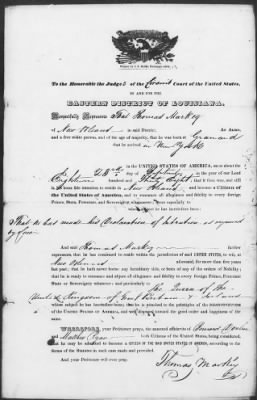 To the Honorable the Judges of the Circuit Court of the United States,
IN AND FOR THE
EASTERN DISTRICT OF LOUISIANA.
Respectfully Represents That Thomas Markey
of New Orleans in said District,
and a free white person, and of the age of majority, that he was born at
that he arrived in New York
in the UNITED STATES OF AMERICA, since about the
28th day of in the year of our Lord
Eighteen hundred and Eight, that it then was, and still
is his bona fide intention to reside in New Orleans and become a Citizen of
the United States of America, and to renounce all allegiance and fidelity to every foreign
Prince, State, Potentate, and Sovereignty whatsoever; respectfully represents
to your Honorable
whatever in has jurisdiction here:
That he last made his Declaration of Intention as required
by law
And said Thomas Markey further
represents, that he has continued to reside within the jurisdiction of said UNITED STATES, to wit, at
New Orleans aforesaid, for more than five years
last past; that he hath never borne any hereditary title, or been of any of the orders of Nobility;
that he is ready to renounce and abjure all allegiance and fidelity to every Foreign Prince, Potentate
State or Sovereignty whatever; and particularly to
the Queen of the
United Kingdom of Great Britain & Ireland
whose subject he has heretofore been; that he is attached to the principles of the
UNITED STATES OF AMERICA, and well disposed toward the good order and happiness of the
same.
WHEREFORE, your Petitioner prays, the annexed affidavits of
and Mathew being considered,
that he may be admitted to become a CITIZEN OF THE SAID UNITED STATES OF AMERICA, according to the
forms of the Statutes in such case made and provided.
And your Petitioner will ever pray.
Thomas Markey